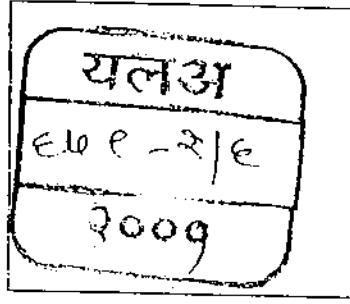 यलअ
६५१ - २|६
२००१